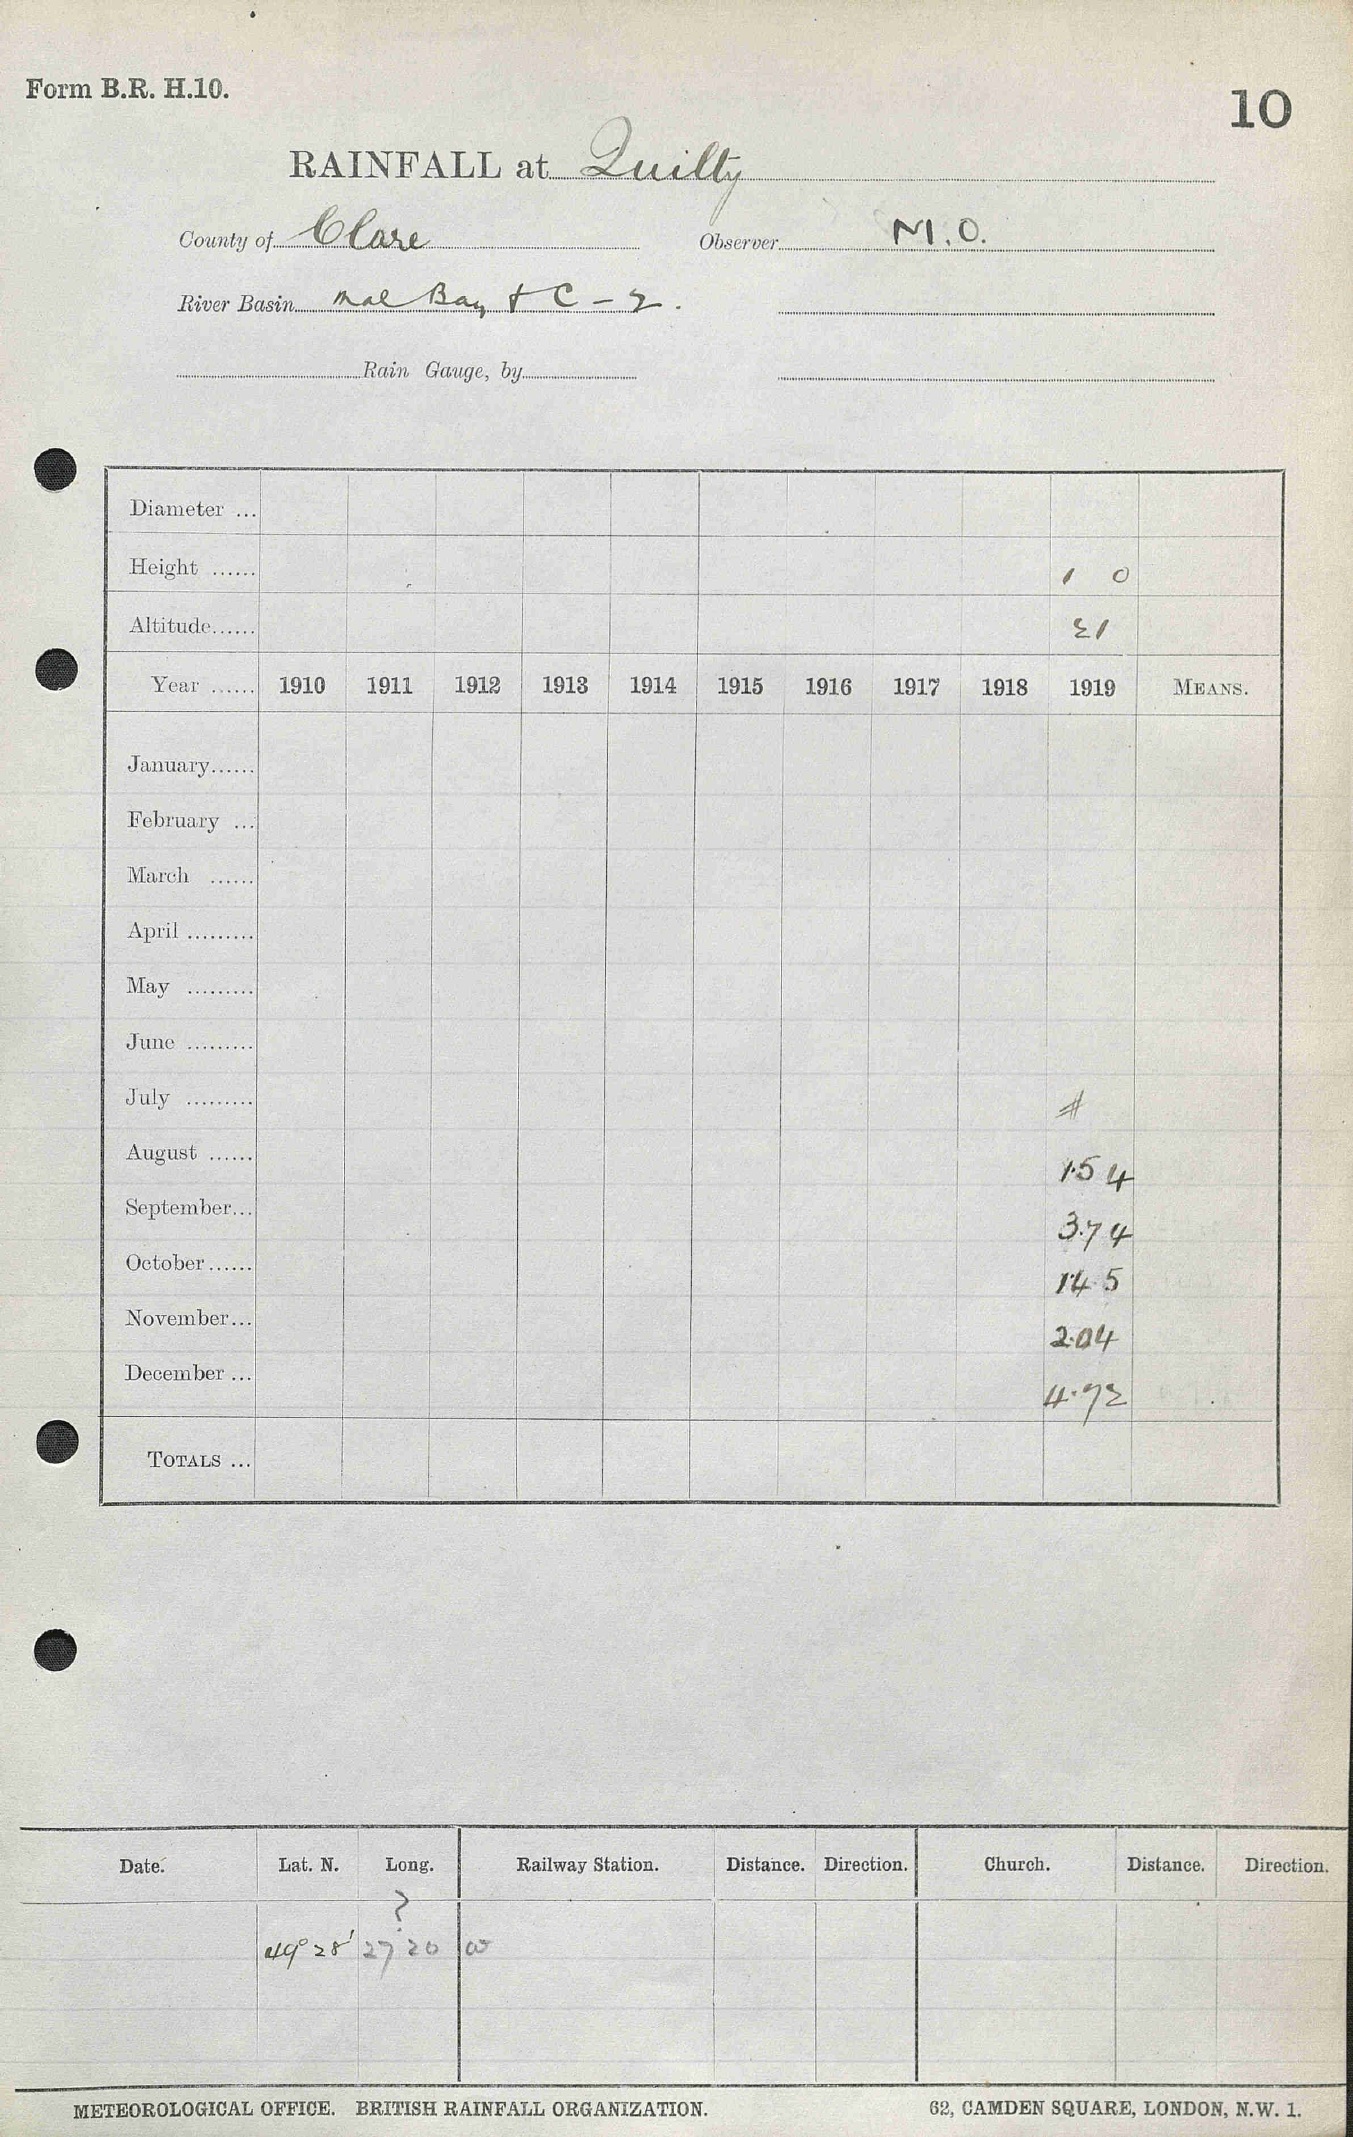 Form B.R. H.10.
10
RAINFALL at Quilty
County of Clare Observer M.O.
River Basin Mal Bay & C - 2.
Rain Gauge, by
Diameter ...
Height ...... 1 0
Altitude...... 21
Year ...... 1910 1911 1912 1913 1914 1915 1916 1917 1918 1919 MEANS.
January......
February ...
March ......
April .........
May .........
June .........
July ......... #
August ...... 1.54
September... 3.74
October...... 1.45
November... 2.04
December ... 4.72
TOTALS ...
Date. Lat. N. Long. Railway Station. Distance. Direction. Church. Distance. Direction.
?
49° 28' 27 20 W
METEOROLOGICAL OFFICE. BRITISH RAINFALL ORGANIZATION. 62, CAMDEN SQUARE, LONDON, N.W. 1.